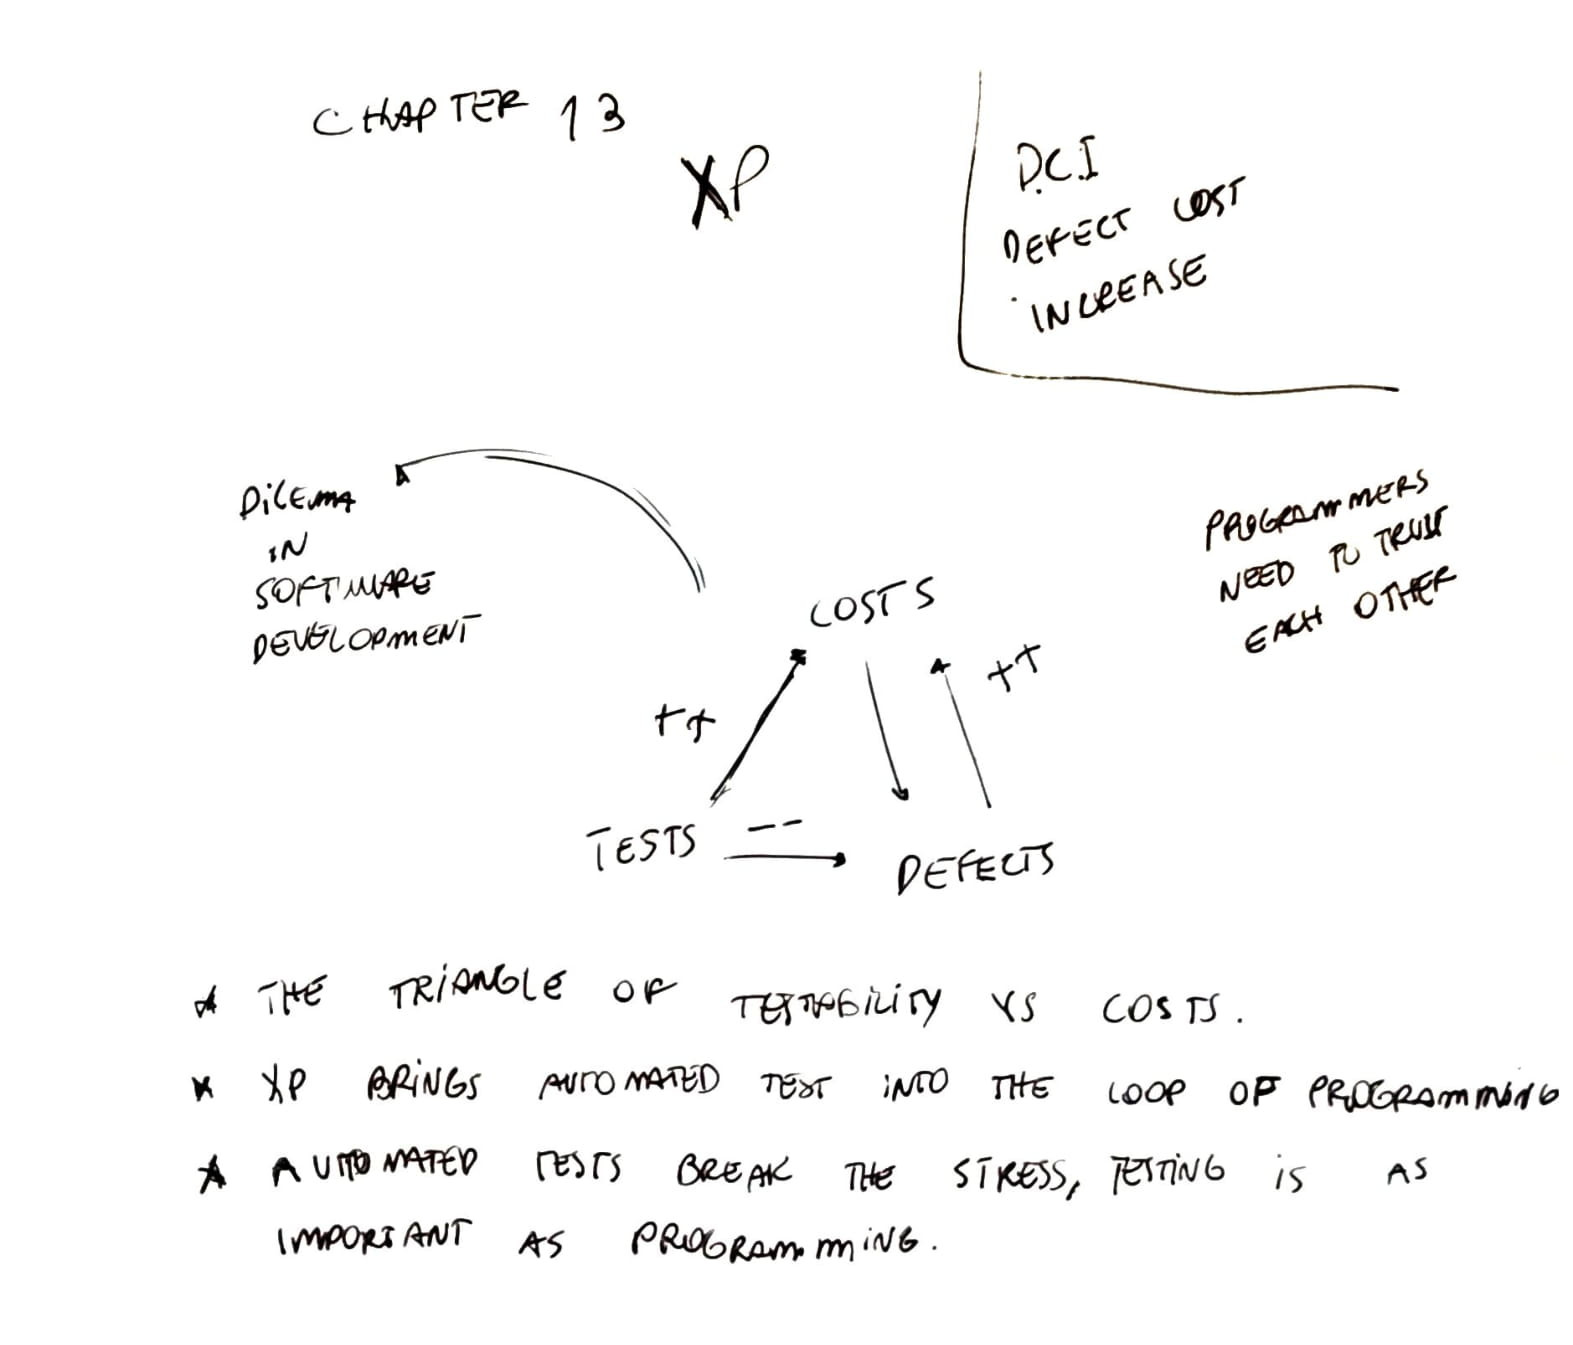 CHAPTER 13
XP
D.C.I
DEFECT COST
INCREASE
DiLEmA
iN
SOFTWARE
DEVELOPMENT
PROGRAMMERS
NEED TO TRUST
EACH OTHER
COSTS
++
++
TESTS
--
DEFECTS
THE TRiANGLE OF TESTABiLiTY VS COSTS.
XP BRiNGS AUTOMATED TEST iNTO THE LOOP OF PROGRAMMiNG
AUTOMATED TESTS BREAK THE STRESS, TESTiNG iS AS
IMPORTANT AS PROGRAMMiNG.